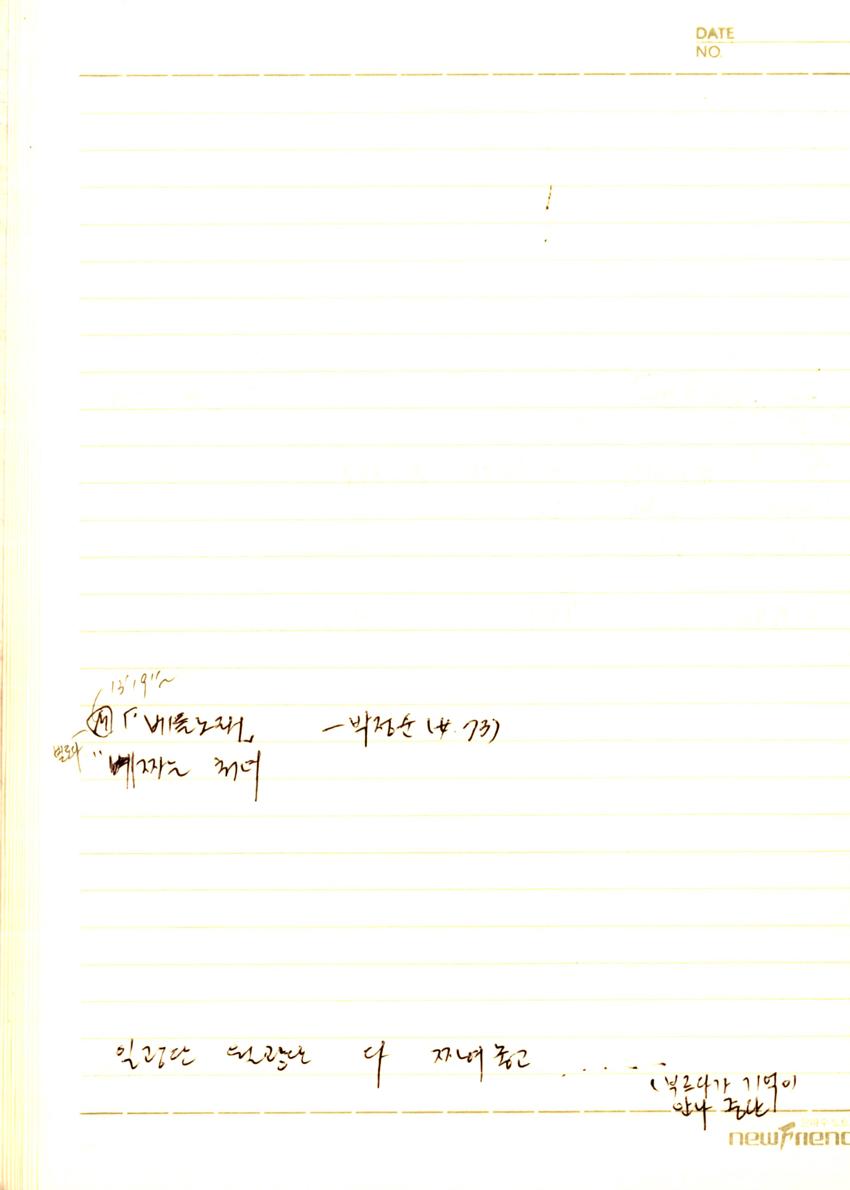 DATE
NO.
13'19"~
M 「베틀노래」 - 박정순 (女. 73)
부르다
" 베짜는 처녀
일광단 월광단 다 짜여 놓고 ......
(부르다가 기억이
안나 중단)
newFriend